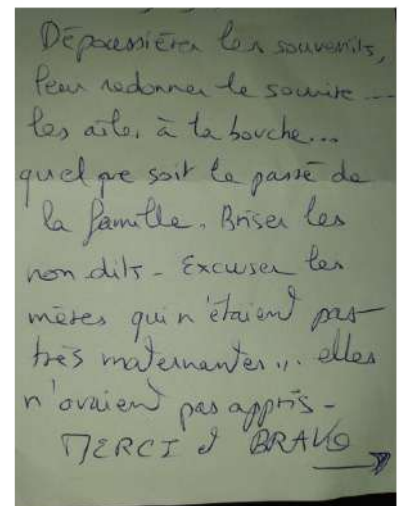 Dépoussiérer les souvenirs,
leur redonner le sourire...
les ailes à la bouche...
quel que soit le passé de
la famille. Briser les
non dits - Excuser les
mères qui n'étaient pas
très maternantes... elles
n'avaient pas appris -
MERCI et BRAVO
→